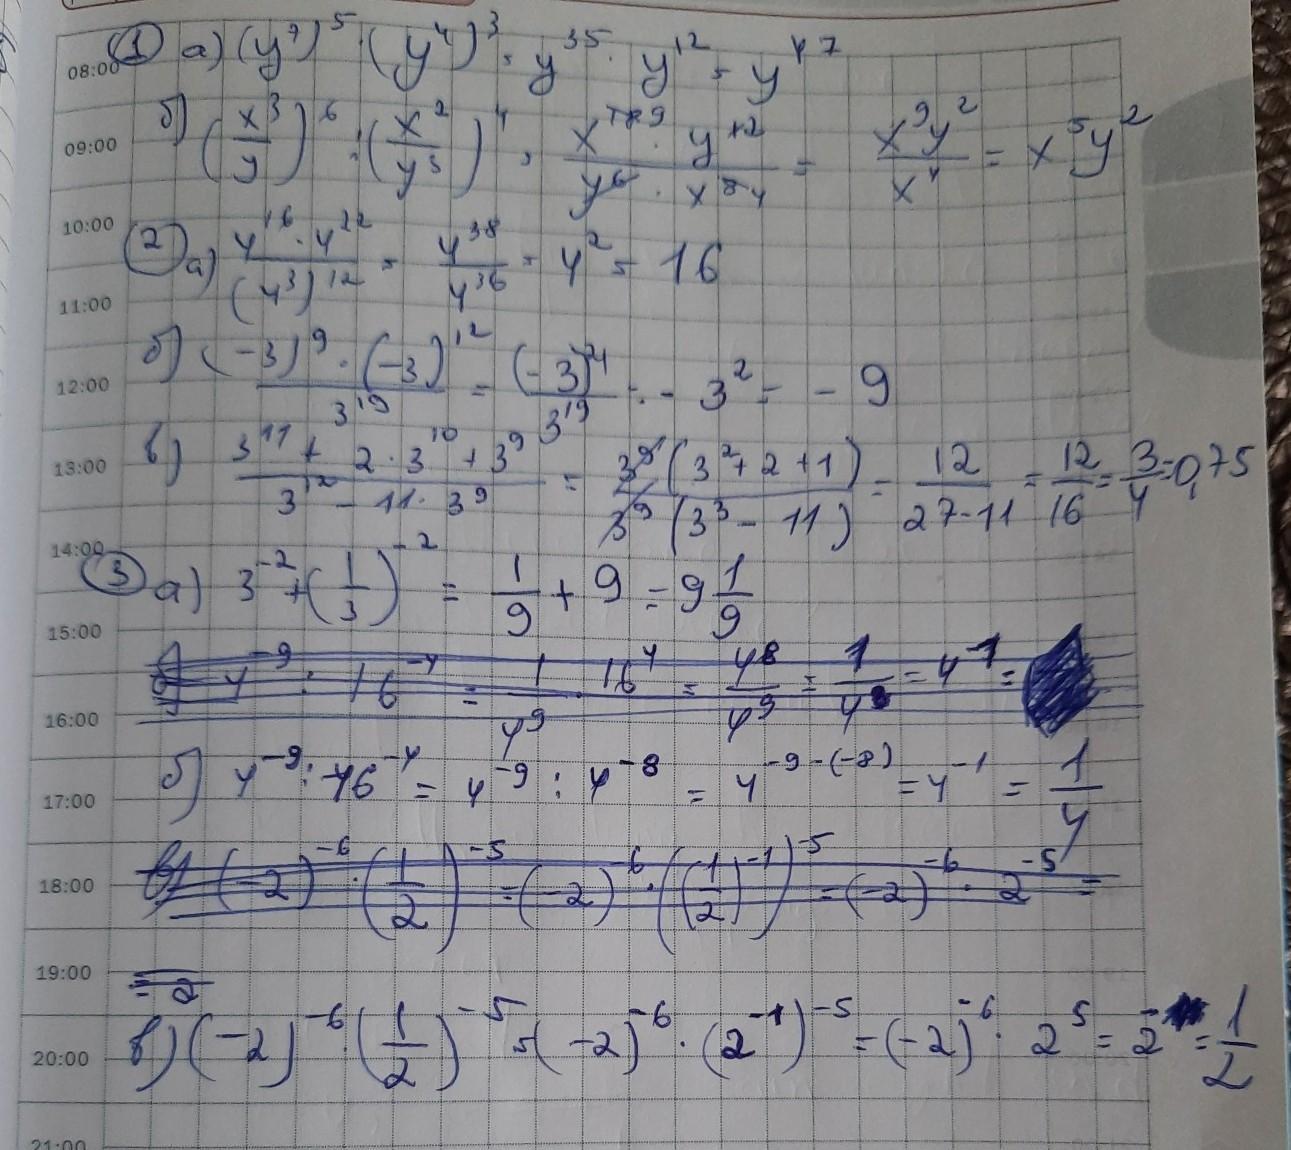 08:00 ① а) (y⁷)⁵ · (y⁴)³ = y³⁵ · y¹² = y⁴⁷
09:00 б) (x³/y)⁶ : (x²/y³)⁴ = (x⁹ · y¹²)/(y⁶ · x⁸ ⁴) = x⁹y²/x⁴ = x⁵y²
10:00
② а) (4¹⁶ · 4²²)/(4³)¹² = 4³⁸/4³⁶ = 4² = 16
11:00
12:00 б) ((-3)⁹ · (-3)¹²)/3¹⁹ = (-3)²¹/3¹⁹ = -3² = -9
13:00 в) (3¹¹ + 2 · 3¹⁰ + 3⁹)/(3¹² - 11 · 3⁹) = 3⁹(3² + 2 + 1)/3⁹(3³ - 11) = 12/(27-11) = 12/16 = 3/4 = 0,75
14:00
③ а) 3⁻² + (1/3)⁻² = 1/9 + 9 = 9 1/9
15:00
б) 4⁻⁹ : 16⁻⁴ = 1/4⁹ · 16⁴ = 4⁸/4⁹ = 1/4 = 4⁻¹ =
16:00
17:00 б) 4⁻⁹ : 16⁻⁴ = 4⁻⁹ : 4⁻⁸ = 4⁻⁹⁻⁽⁻⁸⁾ = 4⁻¹ = 1/4
18:00 в) (-2)⁻⁶ · (1/2)⁻⁵ = (-2)⁻⁶ · ((1/2)⁻¹)⁻⁵ = (-2)⁻⁶ · 2⁻⁵ =
19:00 = 2
20:00 в) (-2)⁻⁶ · (1/2)⁻⁵ = (-2)⁻⁶ · (2⁻¹)⁻⁵ = (-2)⁻⁶ · 2⁵ = 2⁻ = 1/2
21:00